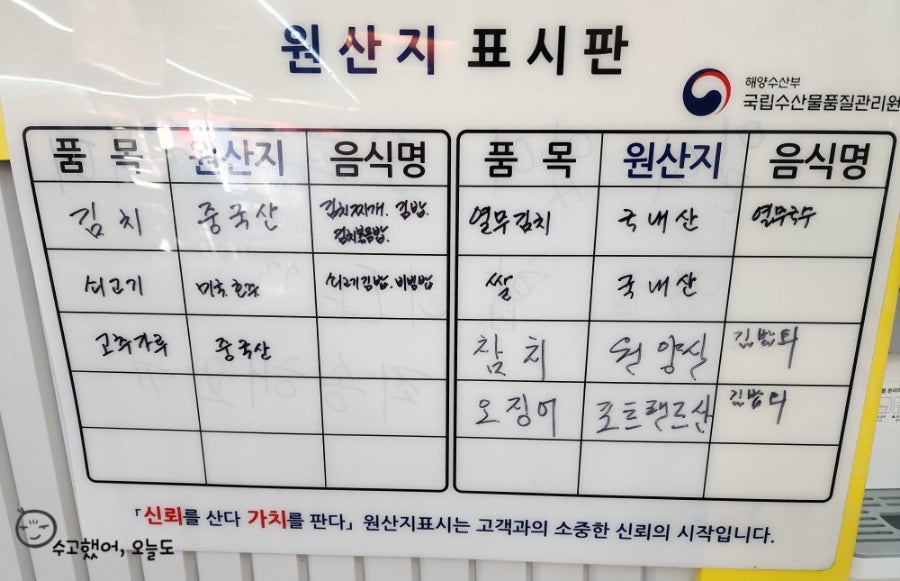 원산지 표시판
해양수산부
국립수산물품질관리원
품 목 원산지 음식명
김치 중국산 김치찌개. 김밥.
김치볶음밥.
쇠고기 미국 호주 쇠고기김밥. 비빔밥
고추가루 중국산
품 목 원산지 음식명
열무김치 국내산 열무국수
쌀 국내산
참치 원양실 김밥
오징어 포트랜드산 김밥
「신뢰를 산다 가치를 판다」 원산지표시는 고객과의 소중한 신뢰의 시작입니다.
수고했어, 오늘도